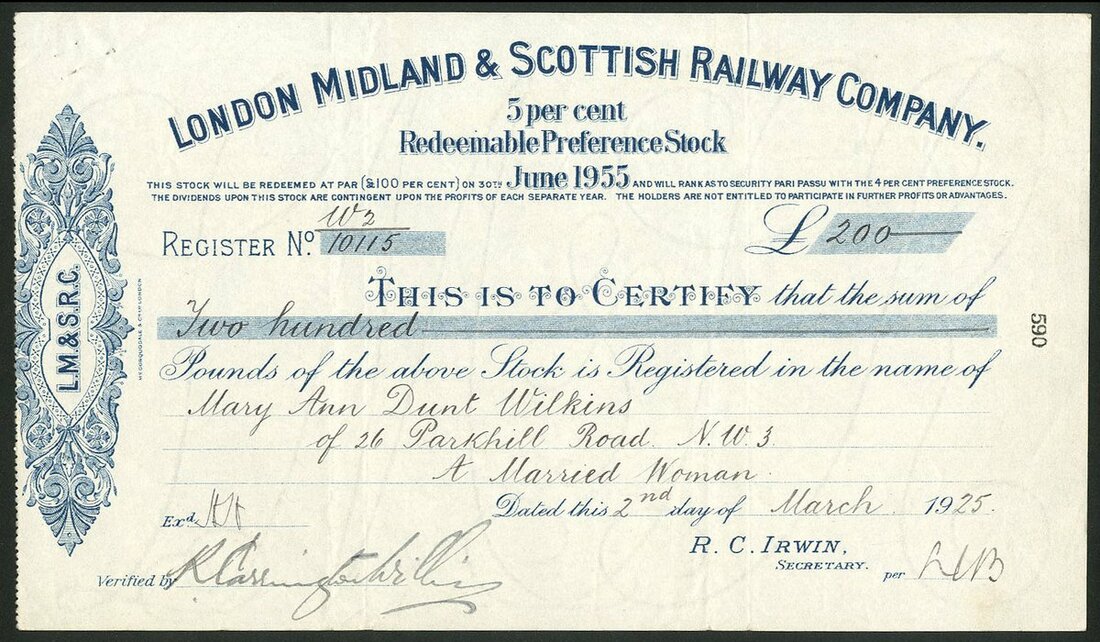 LONDON MIDLAND & SCOTTISH RAILWAY COMPANY.
5 per cent
Redeemable Preference Stock
June 1955
THIS STOCK WILL BE REDEEMED AT PAR (£100 PER CENT) ON 30TH June 1955 AND WILL RANK AS TO SECURITY PARI PASSU WITH THE 4 PER CENT PREFERENCE STOCK.
THE DIVIDENDS UPON THIS STOCK ARE CONTINGENT UPON THE PROFITS OF EACH SEPARATE YEAR. THE HOLDERS ARE NOT ENTITLED TO PARTICIPATE IN FURTHER PROFITS OR ADVANTAGES.
W2
REGISTER No. 10115
£ 200
THIS IS TO CERTIFY that the sum of
Two hundred
Pounds of the above Stock is Registered in the name of
Mary Ann Dunt Wilkins
of 26 Parkhill Road. N.W. 3.
A Married Woman.
Dated this 2nd day of March 1925.
Exd.
R. C. IRWIN,
SECRETARY.
Verified by
per
L.M.& S.R.C.
590